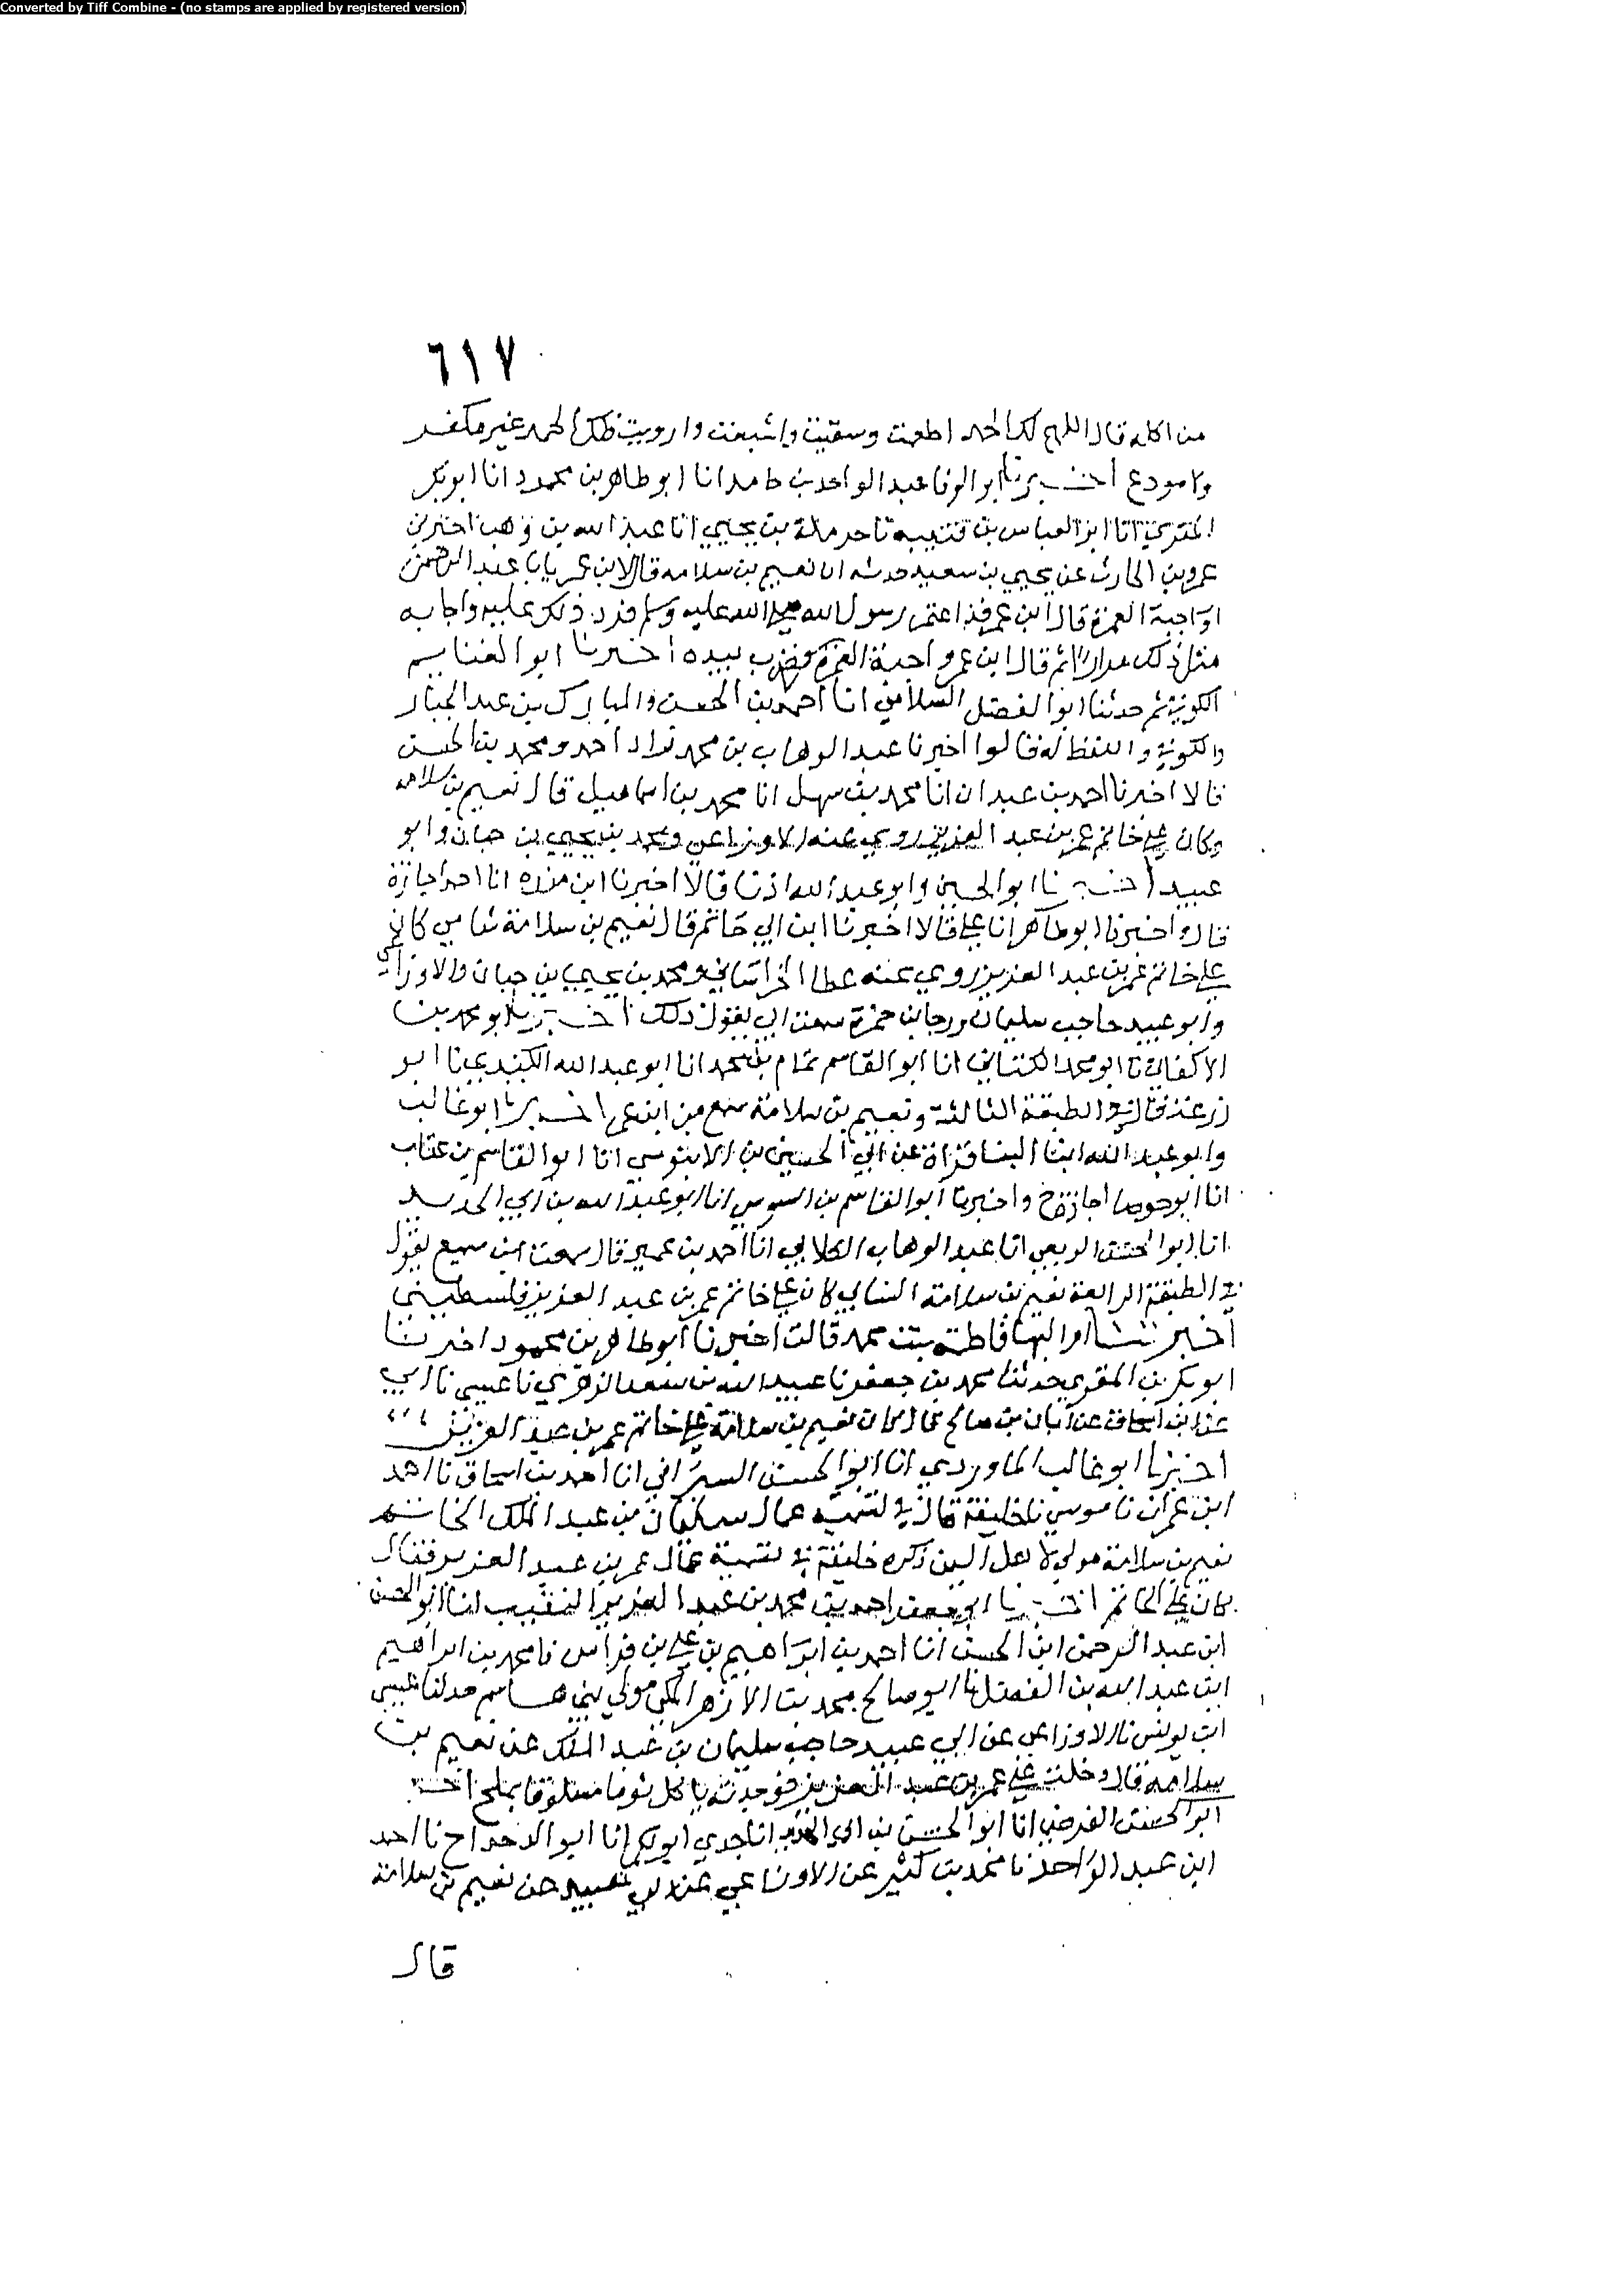 Converted by Tiff Combine - (no stamps are applied by registered version)
٦١٧
من اكله قال اللهم لك الحمد اطعمت وسقيت واشبعت وارويت فلك الحمد غير مكفور
ولا مودع اخبرنا ابو الوفا عبد الواحد بن حامد انا ابو طاهر بن محمود انا ابو بكر
المقري انا ابو العباس بن قتيبه نا حرملة بن يحيي انا عبد الله بن وهب اخبرني
عمرو بن الحارث عن يحيي بن سعيد حدثه ان نعيم بن سلامه قال لابن عمر يا با عبد الرحمن
اواجبة العمرة قال ابن عمر قد اعتمر رسول الله صلي الله عليه وسلم فرد ذلك عليه واجابه
مثل ذلك مرارا ثم قال ابن عمر واجبة العمرة وضرب بيده اخبرنا ابو الغنايم
الكوفي ثم حدثنا ابو الفضل السلامي انا احمد بن الحسن والمبارك بن عبد الجبار
والكوفي واللفظ له قالوا اخبرنا عبد الوهاب بن محمد زاد احمد ومحمد بن الحسن
قالا اخبرنا احمد بن عبدان انا محمد بن سهل انا محمد بن اسماعيل قال نعيم بن سلامه
وكان علي خاتم عمر بن عبد العزيز روي عنه الاوزاعي ومحمد بن يحيي بن حبان وابو
عبيد اخبرنا ابو الحسين وابو عبد الله اذنا قالا اخبرنا ابن منده انا احمد اجازة
قال واخبرنا ابو طاهر انا علي قالا اخبرنا ابن ابي حاتم قال نعيم بن سلامة شامي كان
علي خاتم عمر بن عبد العزيز روي عنه عطا الخراساني ومحمد بن يحيي بن حبان والاوزاعي
وابو عبيد حاجب سليمان ورجا بن حمزة سمعت ابي يقول ذلك اخبرنا ابو محمد بن
الاكفاني نا ابو محمد الكتاني انا ابو القاسم تمام بن محمد انا ابو عبد الله الكندي نا ابو
زرعة قال في الطبقة الثالثة ونعيم بن سلامة سمع من ابن عمر اخبرنا ابو غالب
وابو عبد الله ابنا البنا قراة عن ابي الحسين بن الابنوسي انا ابو القاسم بن عتاب
انا ابو حوصا اجازة ح واخبرنا ابو القاسم بن السوسي انا ابو عبد الله بن ابي الحديد
انا ابو الحسن الربعي انا عبد الوهاب الكلابي انا احمد بن عمير قال سمعت ابن سميع يقول
في الطبقة الرابعة نعيم بن سلامة كان علي خاتم عمر بن عبد العزيز فلسطيني
اخبرتنا ام البها فاطمة بنت محمد قالت اخبرنا ابو طاهر بن محمود اخبرنا
ابو بكر بن المقري حدثنا محمد بن جعفر نا عبيد الله بن سعد الزهري نا عيسي نا ابي
عن ابن اسحاق عن ابان بن صالح قال كان نعيم بن سلامة علي خاتم عمر بن عبد العزيز
اخبرنا ابو غالب الماوردي انا ابو الحسن السيرافي انا احمد بن اسحاق نا احمد
ابن عمران نا موسي نا خليفة قال في تسمية عمال سليمان بن عبد الملك الخاتم
نعيم بن سلامة مولي لاهل اليمن ذكره خليفة في تسمية عمال عمر بن عبد العزيز فقال
كان علي الخاتم اخبرنا ابو جعفر احمد بن محمد بن عبد العزيز النقيب انا ابو الحسن
ابن عبد الرحمن ابن الحسن انا احمد بن ابراهيم بن علي بن فراس نا محمد بن ابراهيم
ابن عبد الله بن الفضل نا ابو صالح محمد بن الازهر المكي مولي بني هاشم حدثنا عيسي
ابن يونس نا الاوزاعي عن ابي عبيد حاجب سليمان بن عبد الملك عن نعيم بن
سلامة قال دخلت علي عمر بن عبد العزيز فوجدته ياكل ثوما مسلوقا بملح اخبرنا
ابو الحسن الفرضي انا ابو الحسن بن ابي الحديد انا جدي ابو بكر انا ابو الدحداح نا احمد
ابن عبد الواحد نا محمد بن كثير عن الاوزاعي عن ابي عبيد عن نعيم بن سلامة
قال